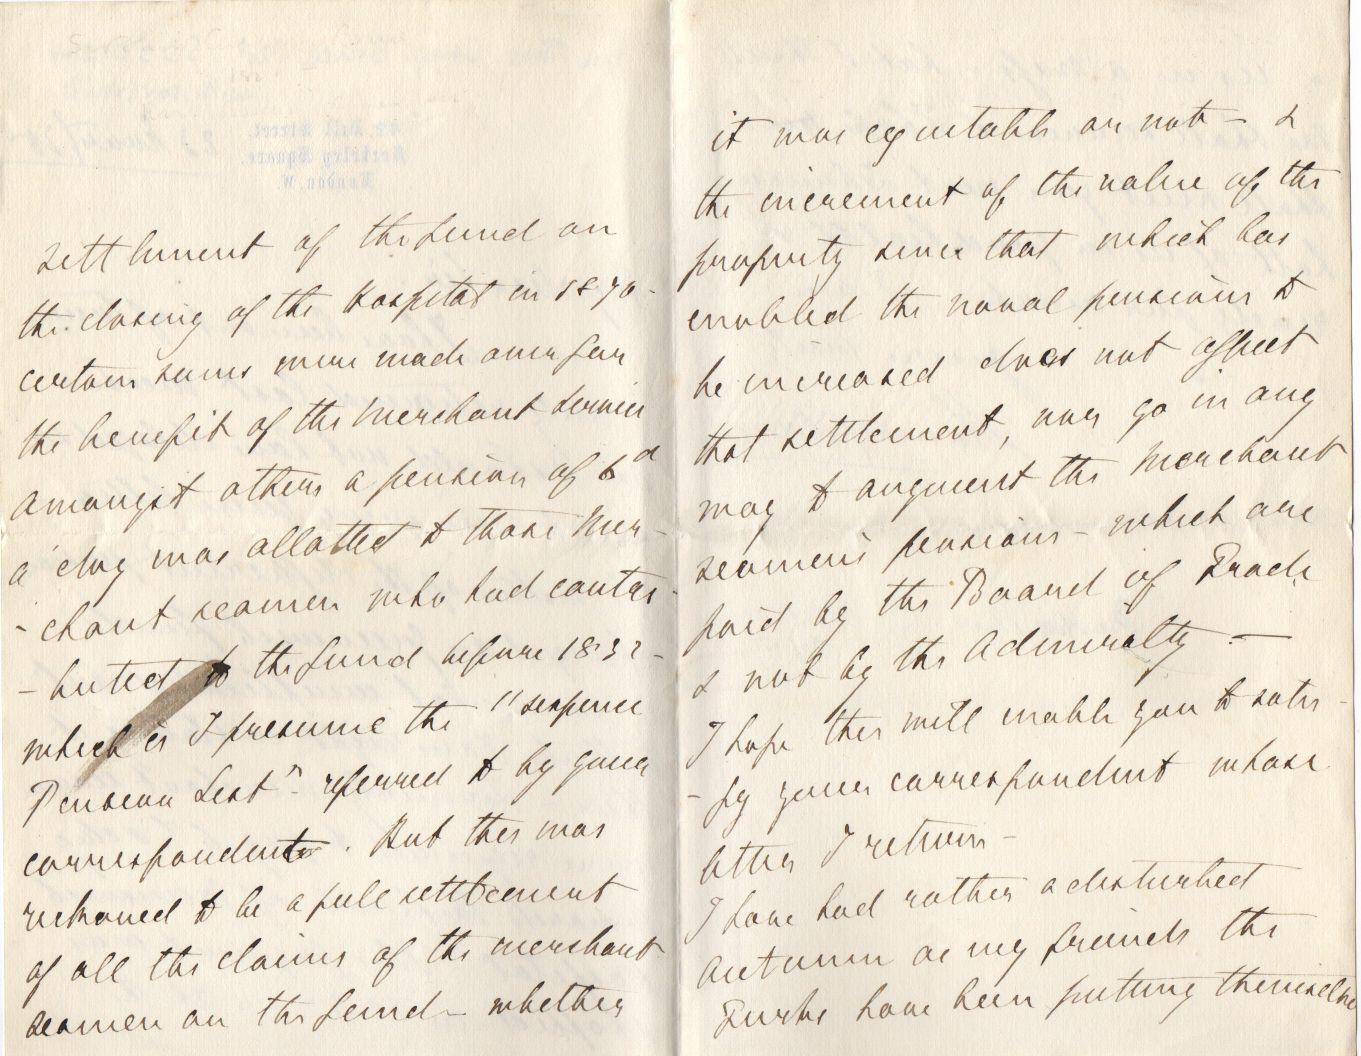 settlement of the fund on
the closing of the Hospital in 1870 -
certain sums were made over for
the benefit of the Merchant Service
Amongst others a pension of 6d
a day was allotted to those Mer-
- chant seamen who had contri-
- buted to the fund before 1832 -
which is I presume the "sixpence
Pension List" - referred to by your
correspondent . But this was
reckoned to be a full settlement
of all the claims of the merchant
seamen on the fund - whether
it was equitable or not - &
the increment of the value of the
property since that which has
enabled the naval pensions to
be increased does not affect
that settlement, nor go in any
way to augment the Merchant
seamen's pensions - which are
paid by the Board of Trade
& not by the Admiralty -
I hope this will enable you to satis-
- fy your correspondent whose
letter I return -
I have had rather a disturbed
Autumn as my friends the
Turks have been putting themselves